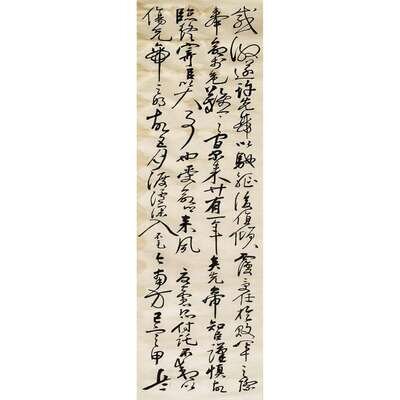 感激遂許先帝以馳驅後值傾覆受任於敗軍之際
奉命於危難之間爾來廿有一年矣先帝知臣謹慎故
臨寄臣以大事也受命以來夙夜恐付託不效以
傷先帝之明故五月渡瀘深入不毛今南方已定甲兵